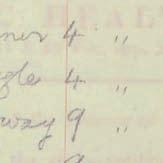 ner 4 "
gle 4 "
way 9 "